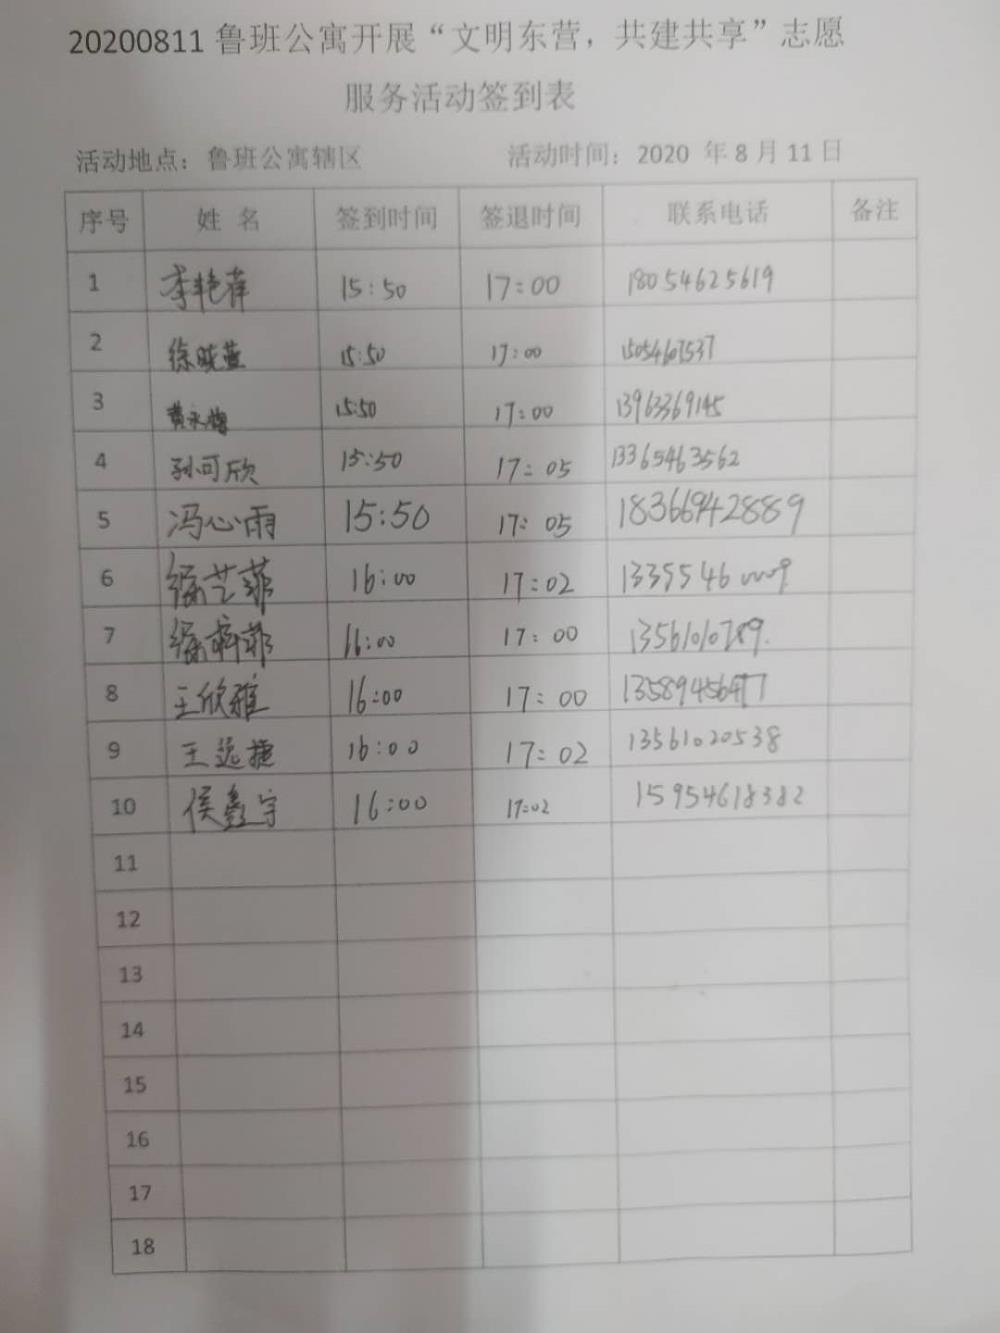 20200811鲁班公寓开展“文明东营，共建共享”志愿
服务活动签到表
活动地点：鲁班公寓辖区 活动时间：2020 年 8 月 11 日
序号 姓 名 签到时间 签退时间 联系电话 备注
1 李艳萍 15:50 17:00 18054625619
2 徐晓萱 15:50 17:00 15054607537
3 黄永梅 15:50 17:00 13963369145
4 孙可欣 15:50 17:05 13365463562
5 冯心雨 15:50 17:05 18366942889
6 徐艺菲 16:00 17:02
7 16:00 17:00 13561010789.
8 王欣雅 16:00 17:00
9 王逸捷 16:00 17:02 13561020538
10 侯鑫宇 16:00 17:02 15954618382
11
12
13
14
15
16
17
18